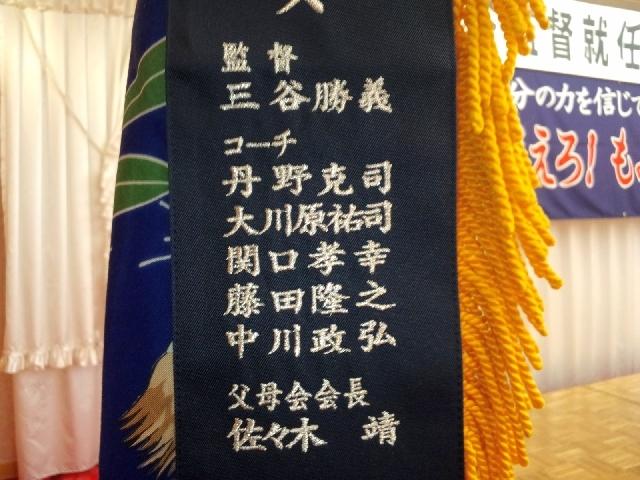 監督
三谷勝義
コーチ
丹野克司
大川原祐司
関口孝幸
藤田隆之
中川政弘
父母会会長
佐々木 靖
督就任
分の力を信じて
えろ! も